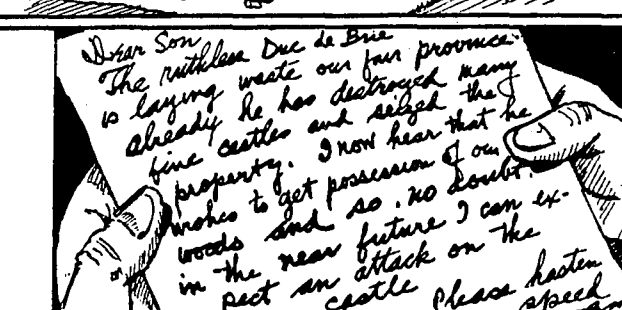 Dear Son
The ruthless Duc de Brie
is laying waste our fair province.
Already he has destroyed many
fine castles and seized the
property. I now hear that he
wishes to get possession of our
woods and so, no doubt,
in the near future I can ex-
pect an attack on the
castle Please hasten
speed